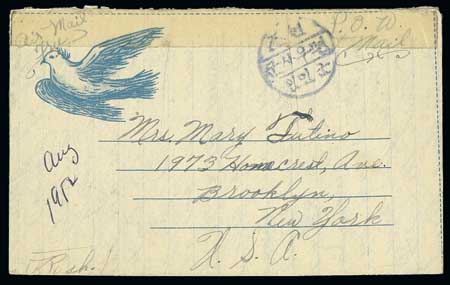 Air Mail
P.O.W.
Mail
Mrs. Mary Tutino
1973 Homecrest, Ave.
Brooklyn,
New York
U. S. A.
Aug
1952
Rush!